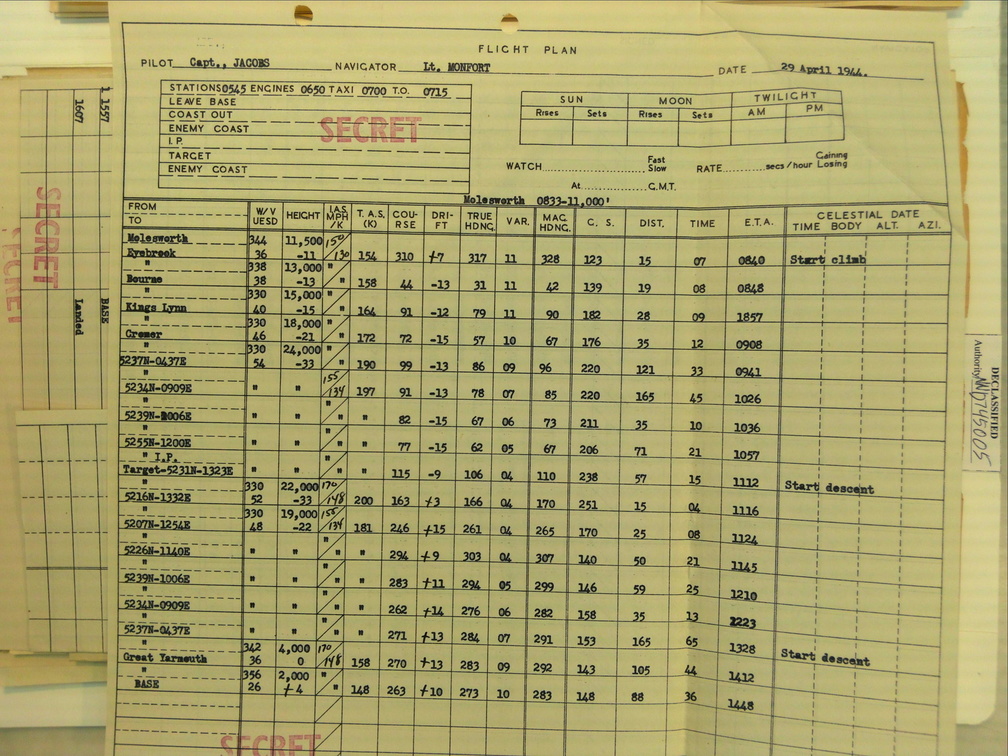 FLIGHT PLAN
PILOT Capt., JACOBS NAVIGATOR Lt. MONFORT DATE 29 April 1944.
STATIONS0545 ENGINES 0650 TAXI 0700 T.O. 0715
LEAVE BASE
COAST OUT
ENEMY COAST
I.P.
TARGET
ENEMY COAST
SECRET
SUN MOON TWILIGHT
Rises Sets Rises Sets AM PM
WATCH Fast Slow RATE secs/hour Gaining Losing
At G.M.T.
Molesworth 0833-11,000'
FROM TO W/V UESD HEIGHT I.A.S. MPH /K T. A.S. (K) COU- RSE DRI- FT TRUE HDNG. VAR. MAG. HDNG. C. S. DIST. TIME E.T.A. CELESTIAL DATE TIME BODY ALT. AZI.
Molesworth 344 11,500 150
Eyebrook 36 -11 130 154 310 +7 317 11 328 123 15 07 0840 Start climb
" 338 13,000 "
Bourne 38 -13 " 158 44 -13 31 11 42 139 19 08 0848
" 330 15,000 "
Kings Lynn 40 -15 " 164 91 -12 79 11 90 182 28 09 1857
" 330 18,000 "
Cromer 46 -21 " 172 72 -15 57 10 67 176 35 12 0908
" 330 24,000 "
5237N-0437E 54 -33 " 190 99 -13 86 09 96 220 121 33 0941
" 155
5234N-0909E " " 134 197 91 -13 78 07 85 220 165 45 1026
" "
5239N-1006E " " " " 82 -15 67 06 73 211 35 10 1036
" "
5255N-1200E " " " " 77 -15 62 05 67 206 71 21 1057
" I.P. "
Target-5231N-1323E " " " " 115 -9 106 04 110 238 57 15 1112 Start descent
" 330 22,000 170
5216N-1332E 52 -33 148 200 163 +3 166 04 170 251 15 04 1116
" 330 19,000 155
5207N-1254E 48 -22 134 181 246 +15 261 04 265 170 25 08 1124
" "
5226N-1140E " " " " 294 +9 303 04 307 140 50 21 1145
" "
5239N-1006E " " " " 283 +11 294 05 299 146 59 25 1210
" "
5234N-0909E " " " " 262 +14 276 06 282 158 35 13 2223
" "
5237N-0437E " " " " 271 +13 284 07 291 153 165 65 1328 Start descent
" 342 4,000 170
Great Yarmouth 36 0 148 158 270 +13 283 09 292 143 105 44 1412
" 356 2,000 "
BASE 26 +4 " 148 263 +10 273 10 283 148 88 36 1448
SECRET
1557
1607
BASE
Landed
SECRET
SECRET
DECLASSIFIED
Authority NND745005